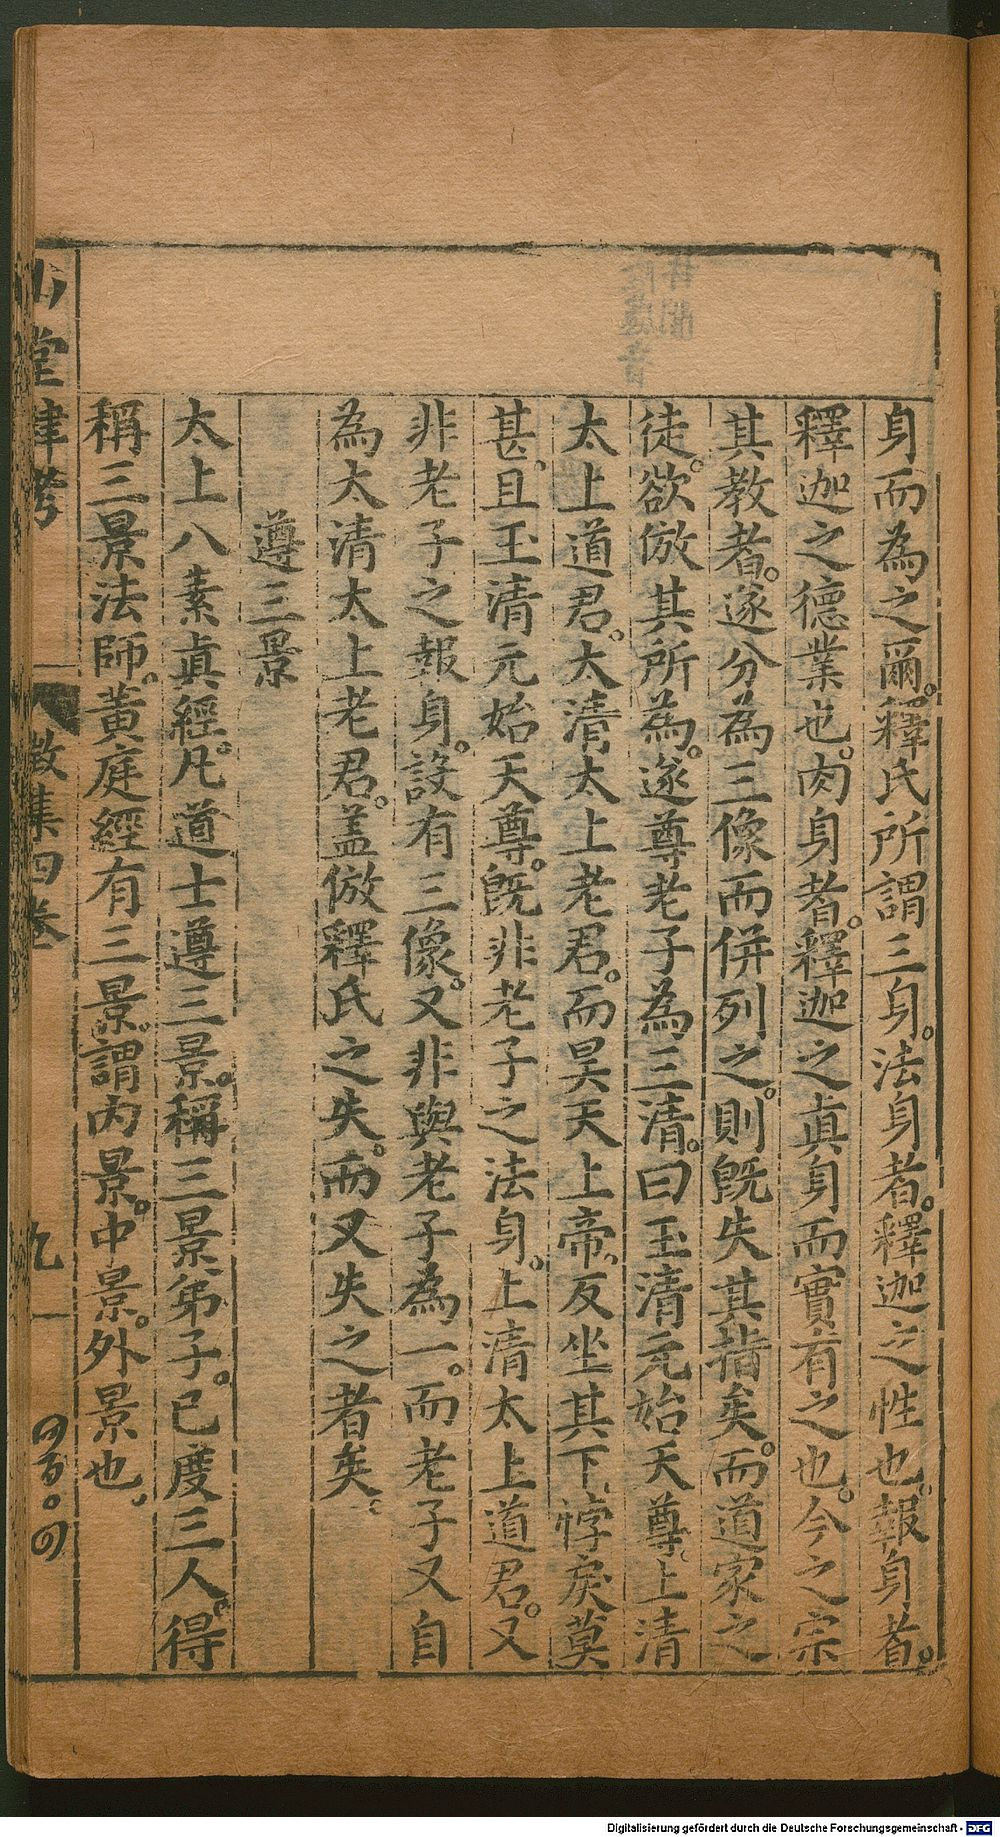 身而為之爾。釋氏所謂三身。法身者。釋迦之性也。報身者。
釋迦之德業也。肉身者。釋迦之真身而實有之也。今之宗
其教者。遂分為三像而併列之。則既失其指矣。而道家之
徒。欲倣其所為。遂尊老子為三清。曰玉清元始天尊。上清
太上道君。太清太上老君。而昊天上帝。反坐其下。悖戾莫
甚。且玉清元始天尊。既非老子之法身。上清太上道君。又
非老子之報身。設有三像。又非與老子為一。而老子又自
為太清太上老君。盖倣釋氏之失。而又失之者矣。
遵三景
太上八素真經。凡道士遵三景。稱三景弟子。已度三人。得
稱三景法師。黃庭經有三景。謂內景。中景。外景也。
山堂肆考
徵集四卷
九
Digitalisierung gefördert durch die Deutsche Forschungsgemeinschaft - DFG